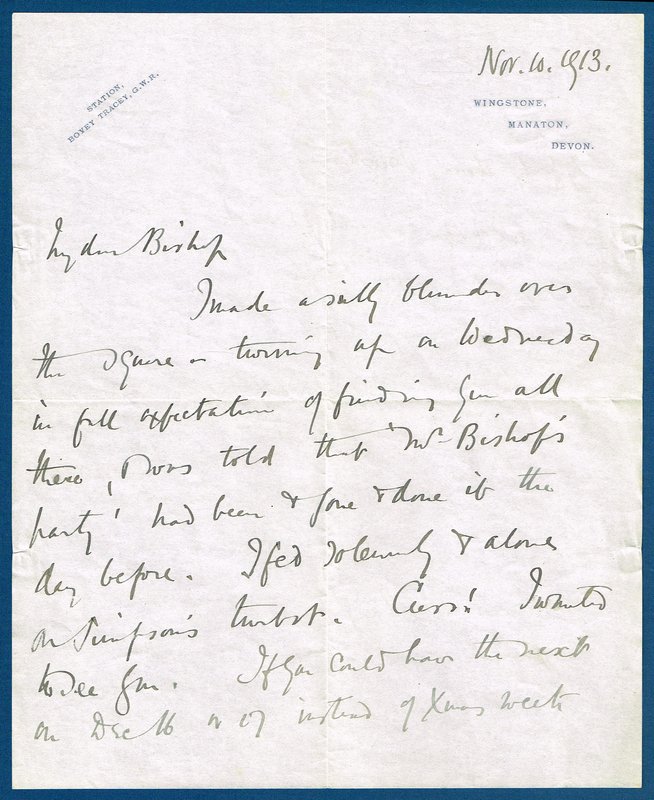 Nov. 10. 1913.
STATION,
BOVEY TRACEY, G.W.R.
WINGSTONE,
MANATON,
DEVON.
My dear Bishop
I made a silly blunder over
the Square - turning up on Wednesday
in full expectation of finding you all
there, I was told that 'Mr Bishop's
party' had been & gone & done it the
day before. I fed solemnly & alone
on Simpson's turbot. Curs! I wanted
to see you. If you could have the next
on Dec 16 or 17 instead of Xmas week